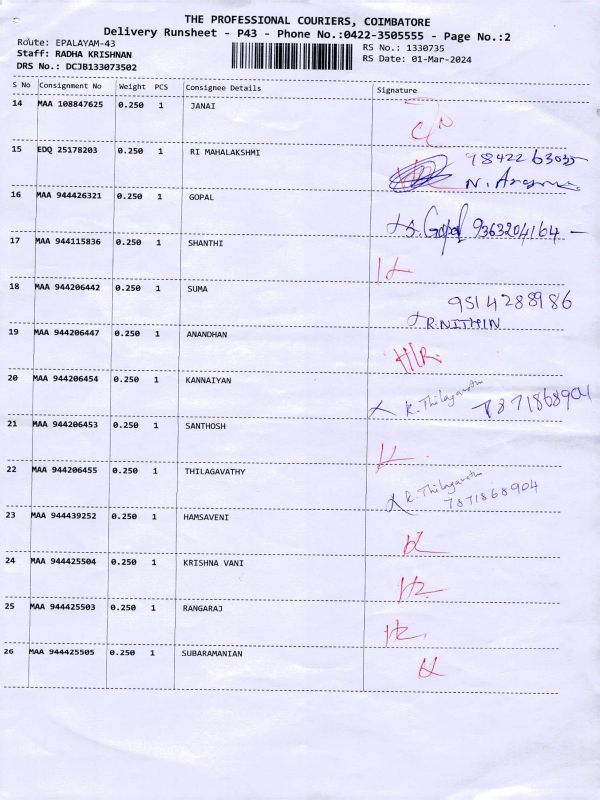 THE PROFESSIONAL COURIERS, COIMBATORE
Delivery Runsheet - P43 - Phone No.:0422-3505555 - Page No.:2
Route: EPALAYAM-43
Staff: RADHA KRISHNAN
DRS No.: DCJB133073502
RS No.: 1330735
RS Date: 01-Mar-2024
S No Consignment No Weight PCS Consignee Details Signature
14 MAA 108847625 0.250 1 JANAI
15 EDQ 25178203 0.250 1 RI MAHALAKSHMI
N.
16 MAA 944426321 0.250 1 GOPAL
S. Gopal 9363204164
17 MAA 944115836 0.250 1 SHANTHI
18 MAA 944206442 0.250 1 SUMA
9514288986
R.NITHIN
19 MAA 944206447 0.250 1 ANANDHAN
20 MAA 944206454 0.250 1 KANNAIYAN
K. Thilagavathi 7871868904
21 MAA 944206453 0.250 1 SANTHOSH
22 MAA 944206455 0.250 1 THILAGAVATHY
K. Thilagavathi
7871868904
23 MAA 944439252 0.250 1 HAMSAVENI
24 MAA 944425504 0.250 1 KRISHNA VANI
25 MAA 944425503 0.250 1 RANGARAJ
26 MAA 944425505 0.250 1 SUBARAMANIAN